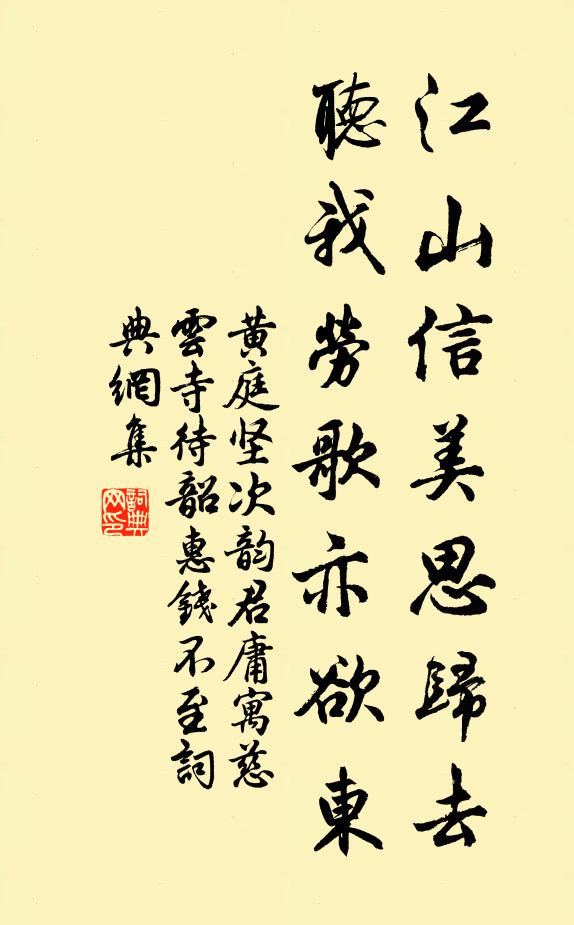 江山信美思歸去
聽我勞歌亦欲東
黄庭坚次韵君庸寓慈
雲寺待韶惠錢不至詞
典網集
詞典
网印